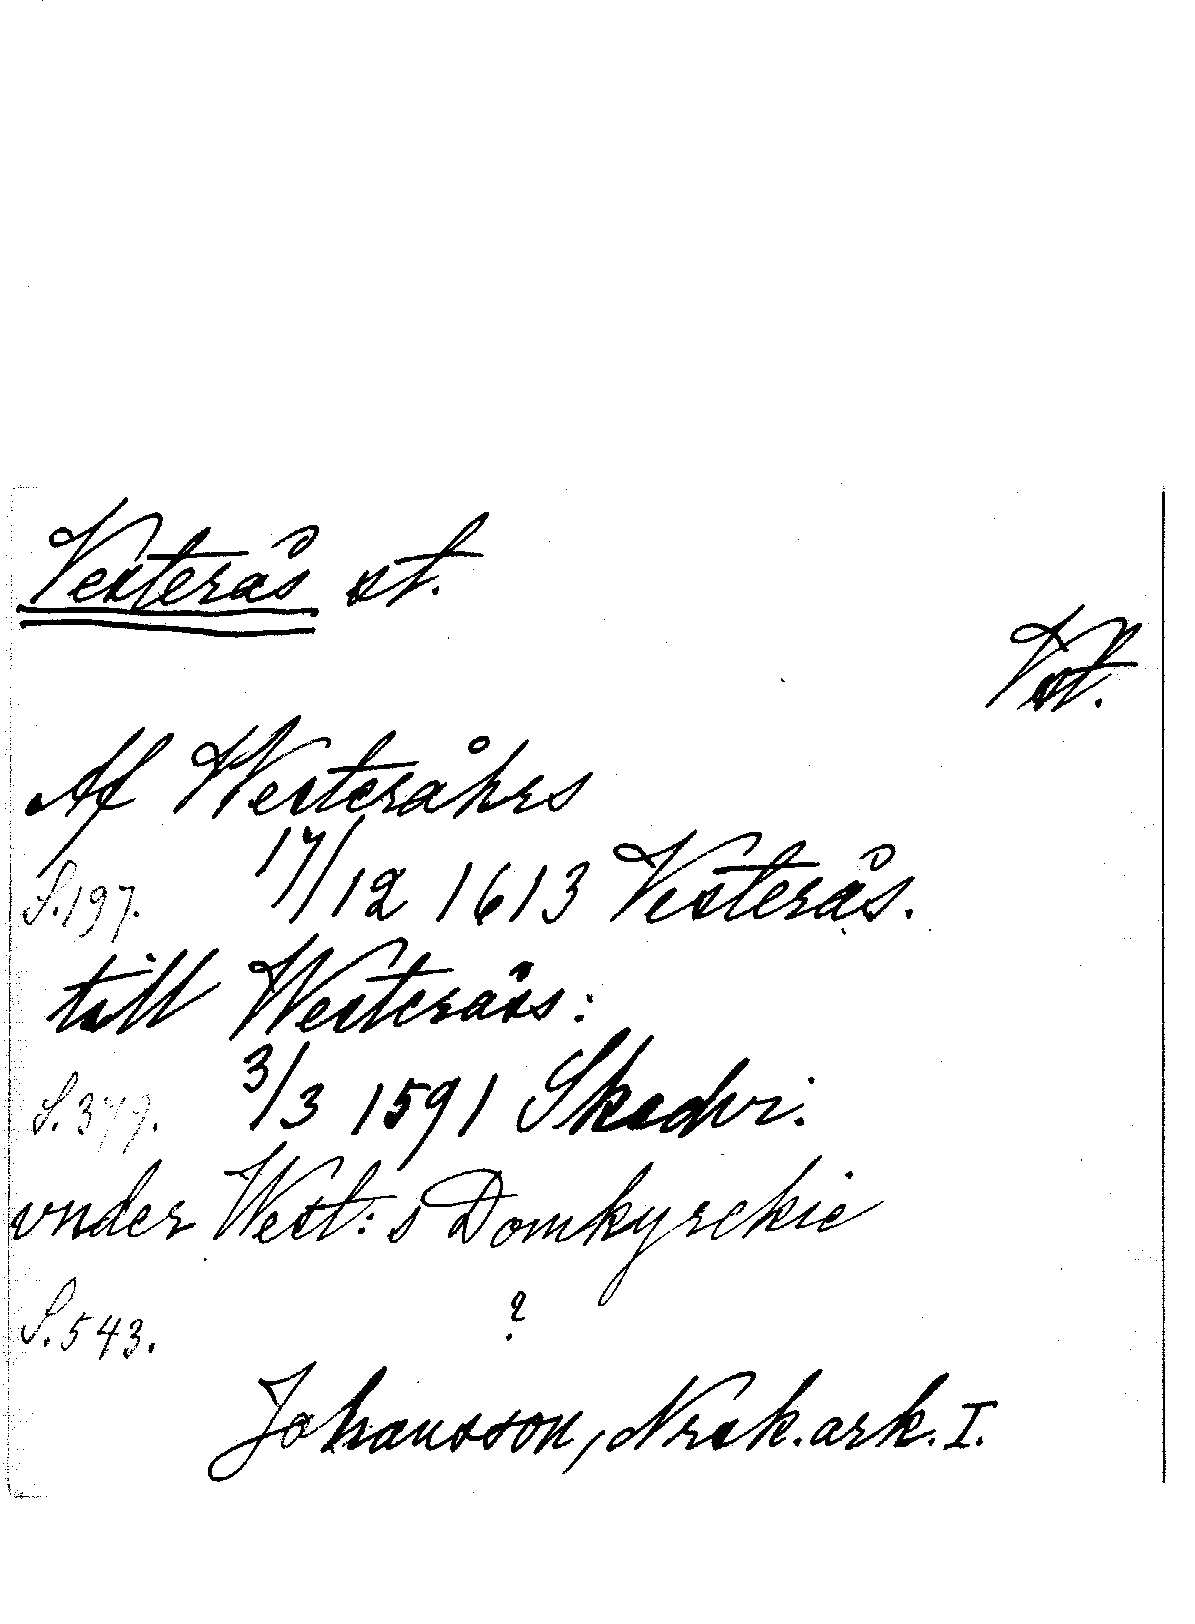 Vesterås st.
Vst.
Af Westeråhrs
S. 197. 17/12 1613 Vesterås.
till Westeråss:
S. 379. 3/3 1591 Skedvi.
vnder West: s Domkyrckie
S. 543. ?
Johansson, Nrsk. ark. I.